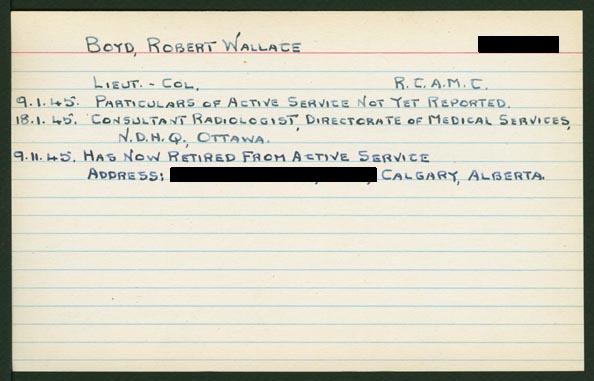 BOYD, ROBERT WALLACE
LIEUT. - COL. R.C.A.M.C.
9.1.45. PARTICULARS OF ACTIVE SERVICE NOT YET REPORTED.
18.1.45. CONSULTANT RADIOLOGIST, DIRECTORATE OF MEDICAL SERVICES,
N.D.H.Q., OTTAWA.
9.11.45. HAS NOW RETIRED FROM ACTIVE SERVICE
ADDRESS: CALGARY, ALBERTA.